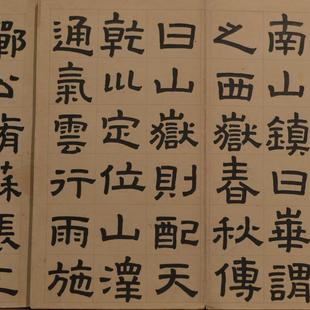 南山鎮曰崋謂
之西嶽春秋傳
曰山嶽則配天
乾定位山澤
通氣雲行雨施